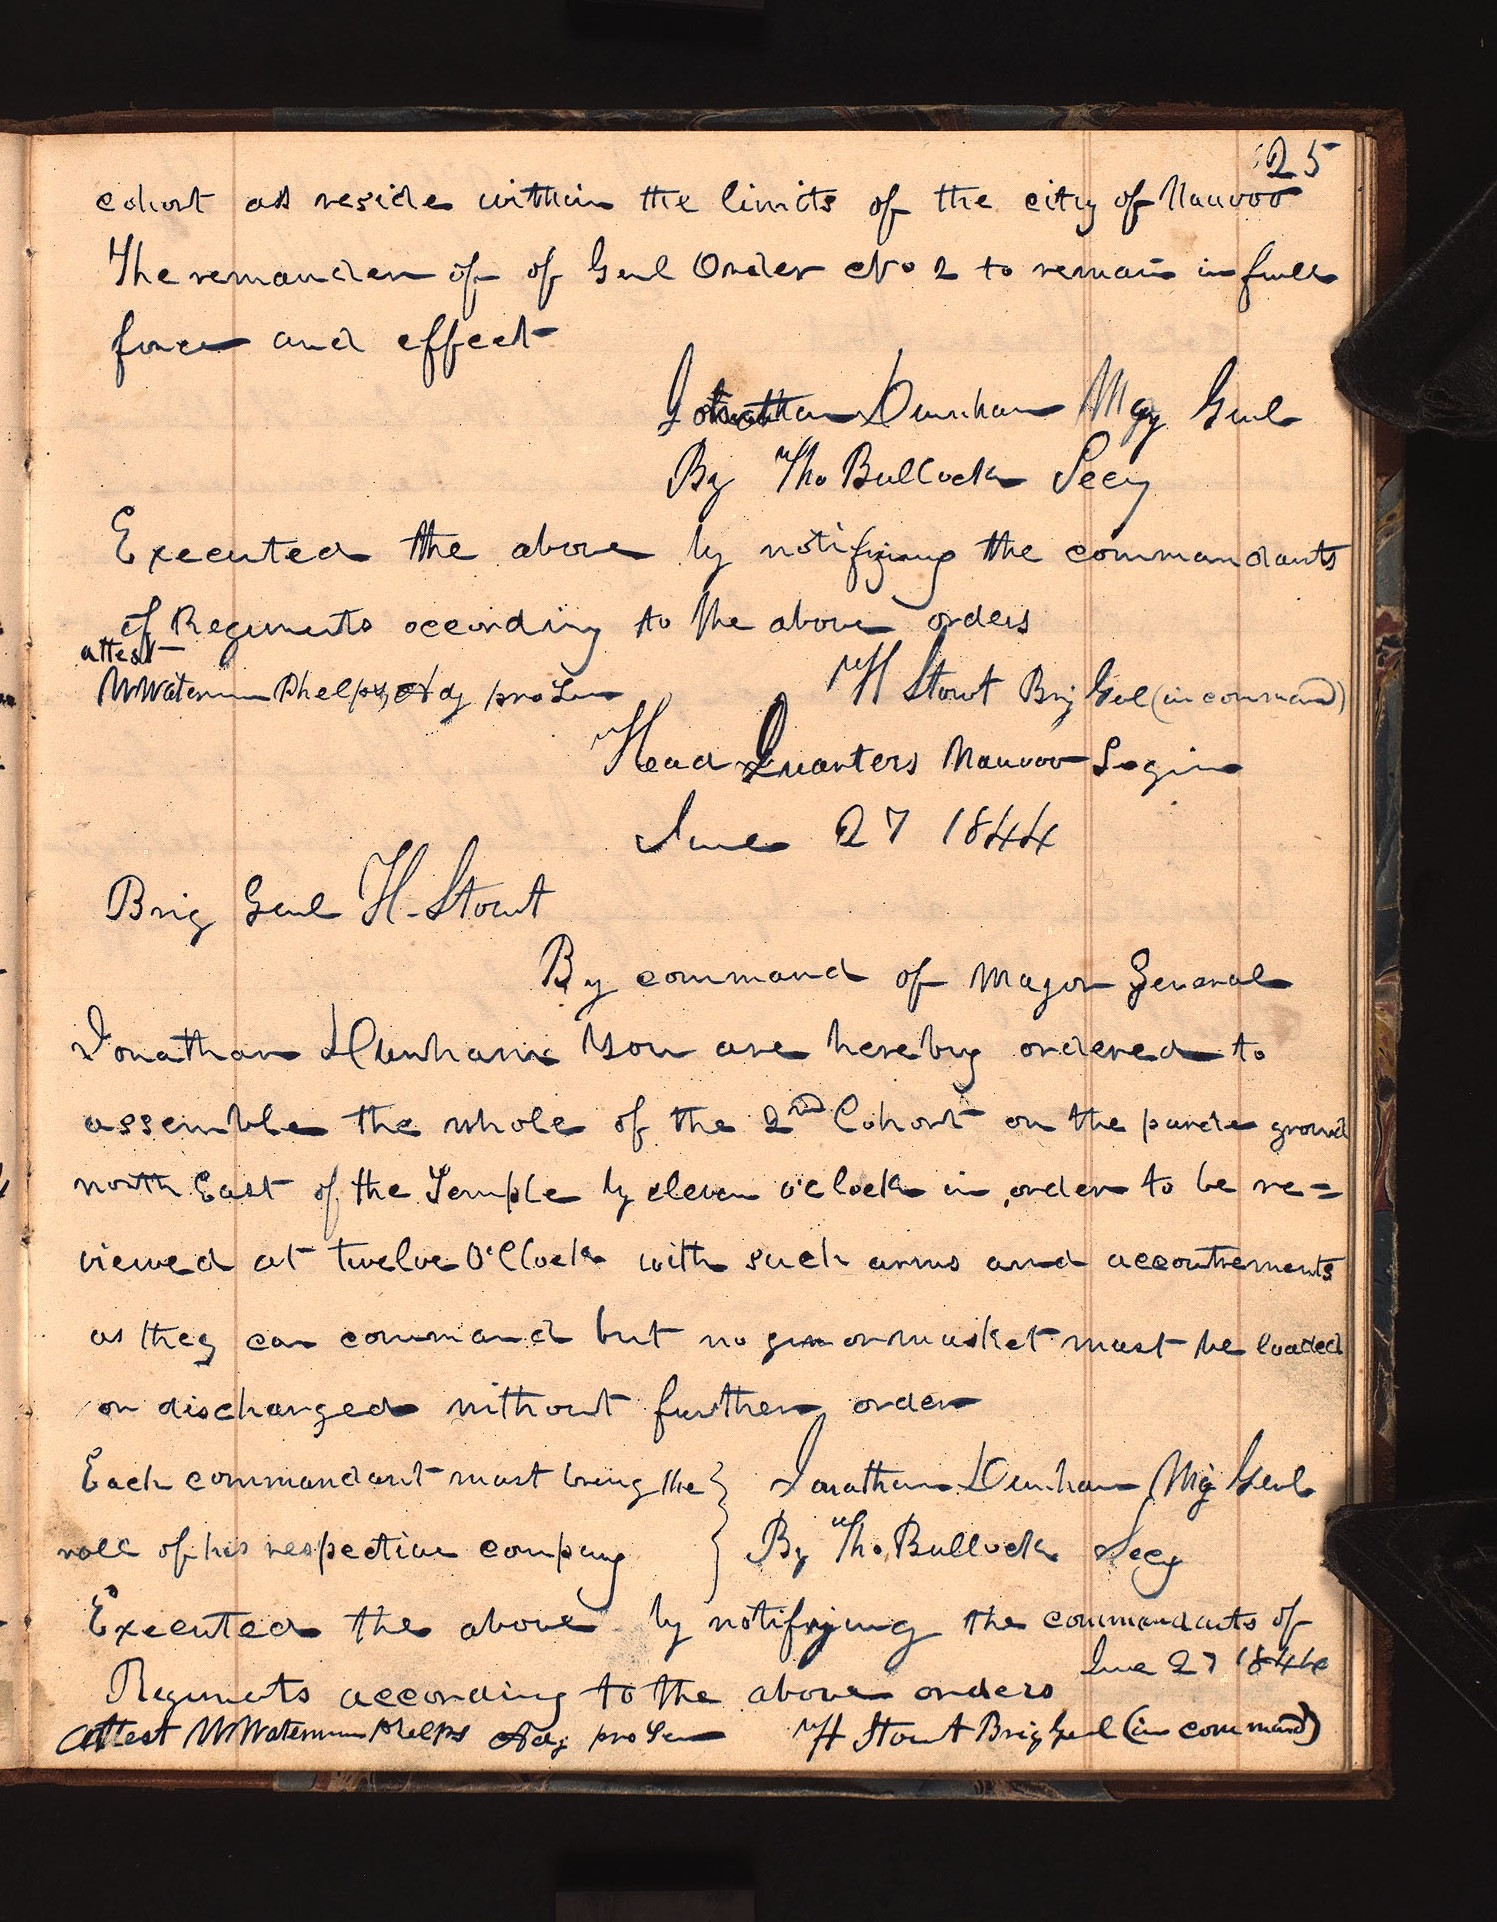 25
cohort as reside within the limits of the city of Nauvoo
The remander of of Genl Order No 2 to remain in full
force and effect
Jonathan Dunham Maj Genl
By Tho Bullock Secy
Executed the above by notifying the commandants
of Regements according to the above orders
attest
W Waterman Phelps, Adj pro Tem
H Stout Brig Genl (in command)
Head Quarters Nauvoo Legion
June 27 1844
Brig Genl H. Stout
By command of Major General
Jonathan Dunham You are hereby ordered to
assemble the whole of the 2nd Cohort on the parade ground
north East of the Temple by eleven o'clock in order to be re=
viewed at twelve O'Clock with such arms and accoutrements
as they can command but no gun or musket must be loaded
or discharged without further order
Each commandant must bring the } Jonathan Dunham Mj Genl
roll of his respective company } By Tho. Bullock Secy
Executed the above by notifying the commandants of
Regements according to the above orders June 27 1844
Attest W Waterman Phelps Adj pro Tem H Stout Brig Genl (in command)